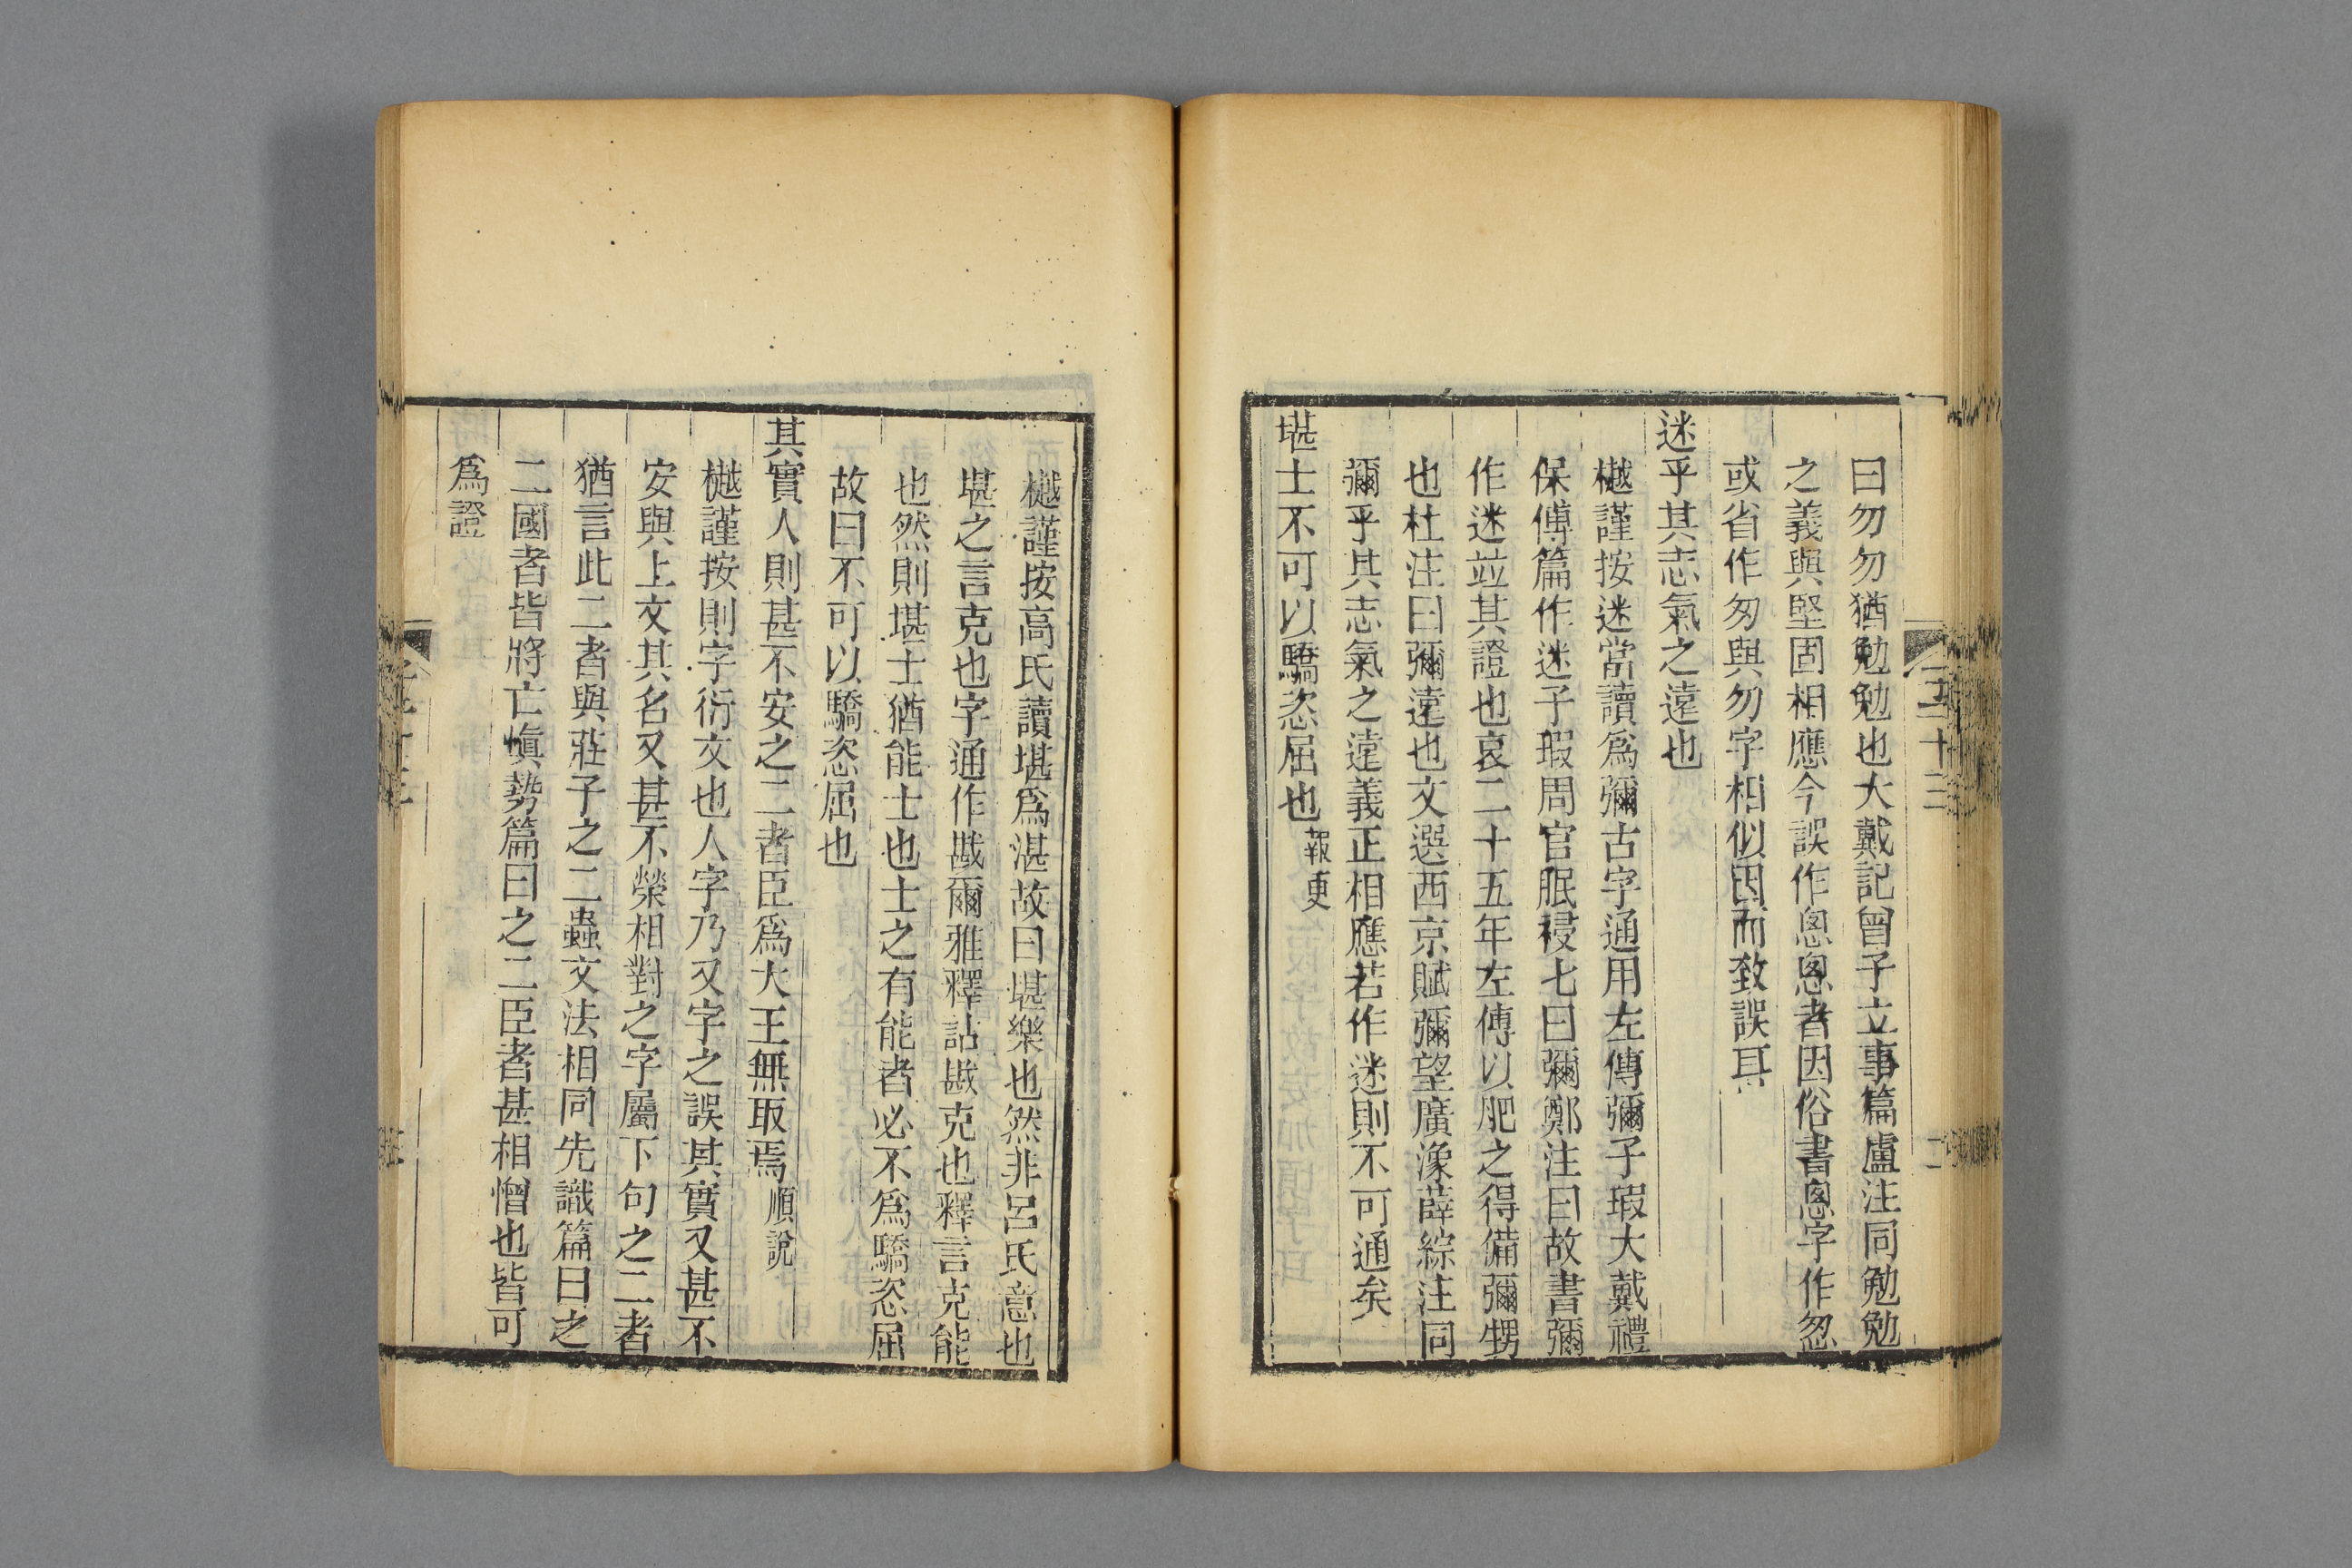 曰勿勿猶勉勉也大戴記曾子立事篇盧注同勉勉
之義與堅固相應今誤作悤悤者因俗書悤字作怱
或省作匆與勿字相似因而致誤耳
迷乎其志氣之遠也
樾謹按迷當讀爲彌古字通用左傳彌子瑕大戴禮
保傅篇作迷子瑕周官眡祲七曰彌鄭注曰故書彌
作迷竝其證也哀二十五年左傳以肥之得備彌甥
也杜注曰彌遠也文選西京賦彌望廣潒薛綜注同
彌乎其志氣之遠義正相應若作迷則不可通矣
堪士不可以驕恣屈也報更
樾謹按高氏讀堪爲湛故曰堪樂也然非呂氏意也
堪之言克也字通作戡爾雅釋詁戡克也釋言克能
也然則堪士猶能士也士之有能者必不爲驕恣屈
故曰不可以驕恣屈也
其實人則甚不安之二者臣爲大王無取焉順說
樾謹按則字衍文也人字乃又字之誤其實又甚不
安與上文其名又甚不榮相對之字屬下句之二者
猶言此二者與莊子之二蟲文法相同先識篇曰之
二國者皆將亡愼勢篇曰之二臣者甚相憎也皆可
爲證